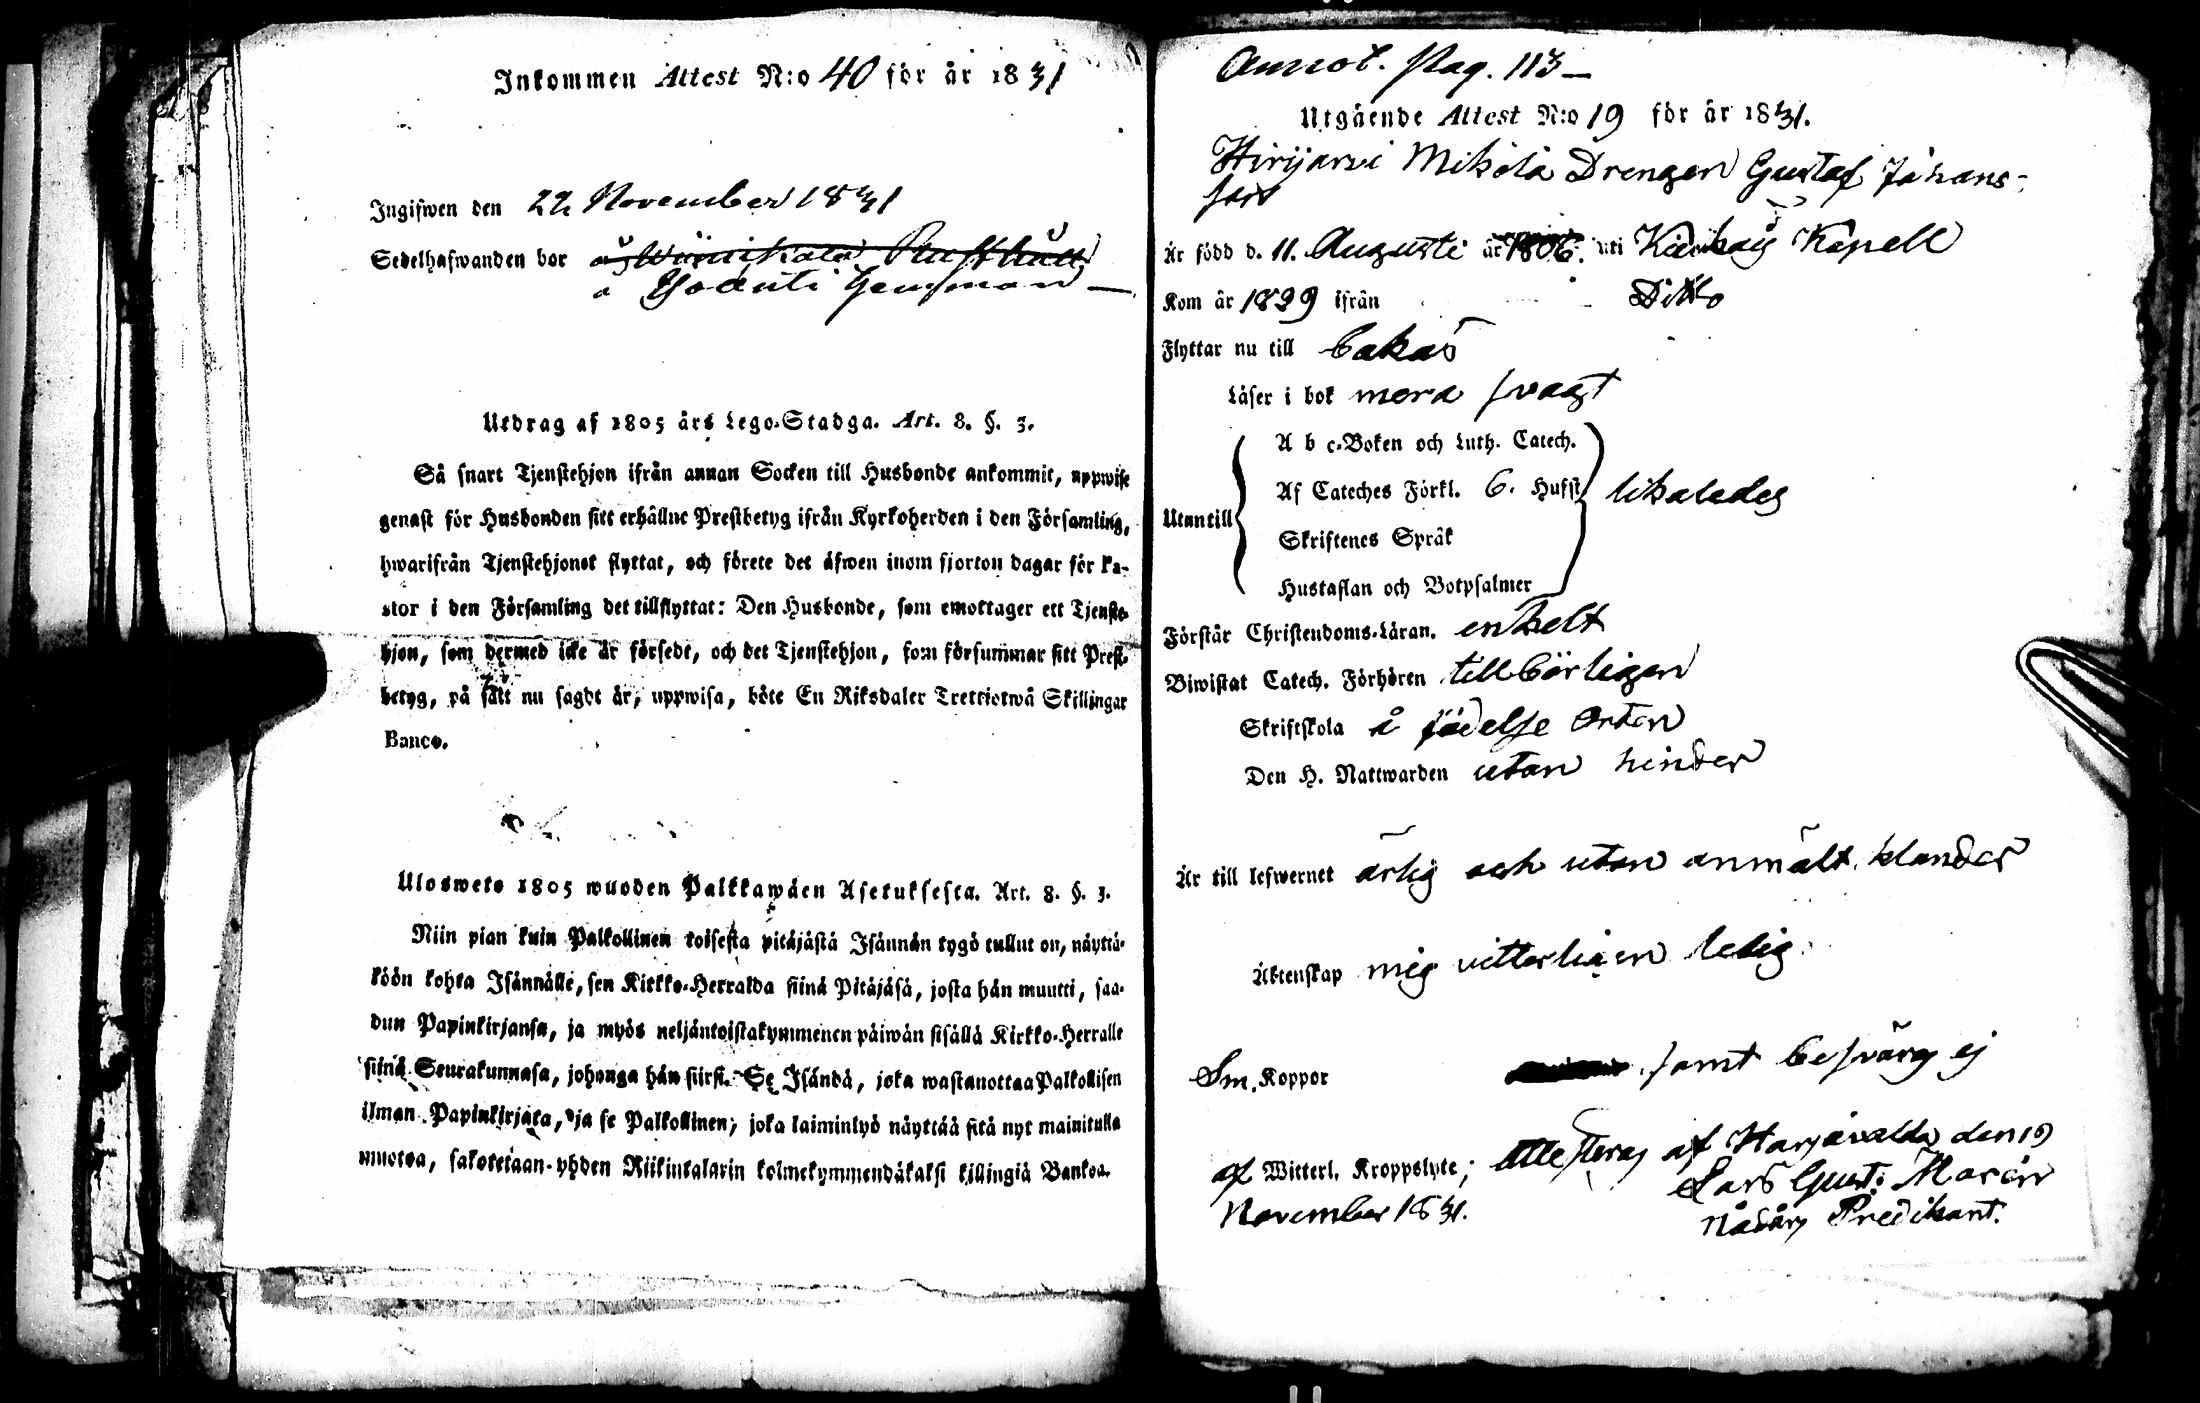 Inkommen Attest N:o 40 för år 1831
Ingifwen den 22 November 1831
Sedelhafwanden bor å Wiinikala Rusthåll
a Yoduti Hemman —
Utdrag af 1805 års Lego-Stadga. Art. 8. §. 3.
Så snart Tjenstehjon ifrån annan Socken till Husbonde ankommit, uppwise
genast för Husbonden sitt erhållne Prestbetyg ifrån Kyrkoherden i den Församling,
hwarifrån Tjenstehjonet flyttat, och förete det äfwen inom fjorton dagar för Pa-
stor i den Församling det tillflyttat: Den Husbonde, som emottager ett Tjenste-
hjon, som dermed icke är försedt, och det Tjenstehjon, som försummar sitt Prest-
betyg, på sätt nu sagdt är, uppwisa, böte En Riksdaler Trettiotwå Skillingar
Banco.
Uloswetо 1805 wuoden Palkkawäen Asetuksesta. Art. 8. §. 3.
Niin pian kuin Palkollinen toisesta pitäjästä Isännän tygö tullut on, näyttä-
köön kohta Isännälle, sen Kirkko-Herralda siinä Pitäjäsä, josta hän muutti, saa-
dun Papinkirjansa, ja myös neljäntoistakymmenen päiwän sisällä Kirkko-Herralle
siinä Seurakunnasa, johonga hän siirsi. Se Isändä, joka wastanottaa Palkollisen
ilman Papinkirjata, ja se Palkollinen, joka laiminlyö näyttää sitä nyt mainitulla
muotoa, sakotetaan yhden Riikintalarin kolmekymmendäkaksi killingiä Bankoa.
Annot. Pag. 113 —
Utgående Attest N:o 19 för år 1831.
Hirijarvi Mikola Drengen Gustaf Johans-
son
Är född d. 11. Augusti år 1806. uti Kiukais Kapell
Kom år 1829 ifrån Ditto
Flyttar nu till
Läser i bok mera svagt
A b c-Boken och Luth. Catech.
Af Cateches Förkl. 6. Hufst.
Utantill likaledes
Skriftenes Språk
Hustaflan och Botpsalmer
Förstår Christendoms-Läran. enkelt
Biwistat Catech. Förhören tillbörligen
Skriftskola å födelse Orten
Den H. Nattwarden utan hinder
Är till lefwernet ärlig och utan anmält klander
Äktenskap mig vitterligen ledig
Sm. Koppor samt besvärg ej
af Witterl. Kroppslyte; Attesteras af Harjavalda den 19
November 1831. Lars Gust. Noren
Nådårs Predikant.